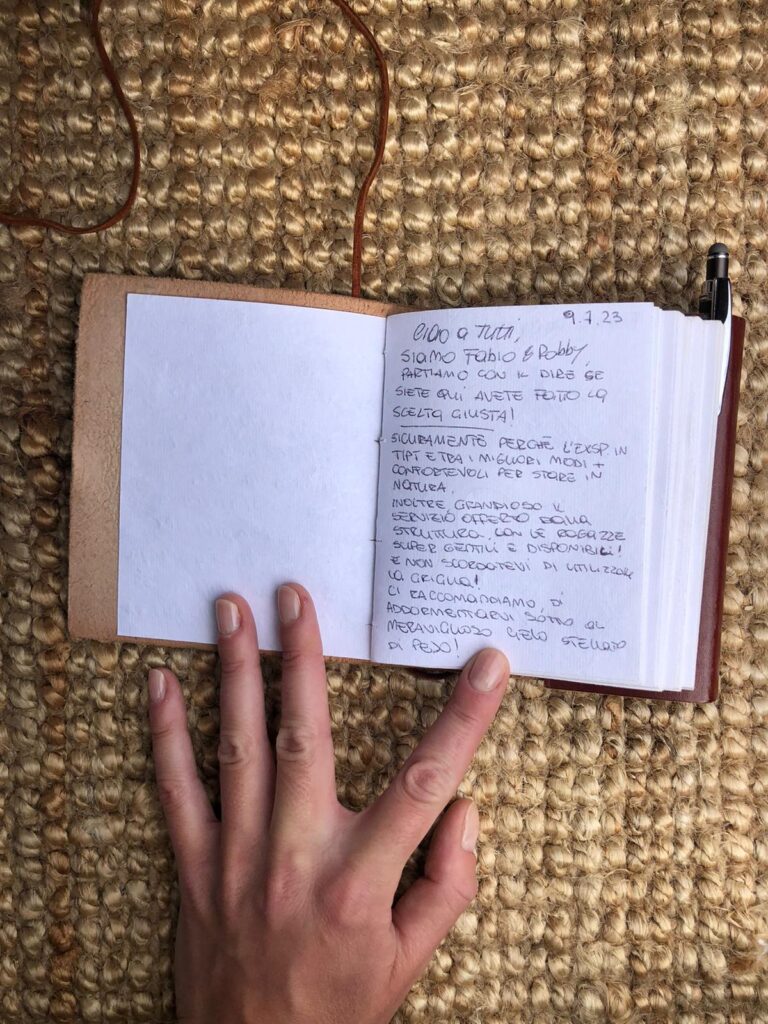 9.7.23
Ciao a Tutti,
SIAMO Fabio & Robby,
PARTIAMO CON IL DIRE SE
SIETE QUI AVETE FATTO LA
SCELTA GIUSTA!
SICURAMENTE PERCHÈ L'EXSP. IN
TIPI E TRA I MIGLIORI MODI +
CONFORTEVOLI PER STARE IN
NATURA.
INOLTRE GRANDIOSO IL
SERVIZIO OFFERTO DALLA
STRUTTURA. CON LE RAGAZZE
SUPER GENTILI E DISPONIBILI!
E NON SCORDATEVI DI UTILIZZARE
LA GRIGLIA!
CI RACCOMANDIAMO DI
ADDORMENTARVI SOTTO AL
MERAVIGLIOSO CIELO STELLATO
DI